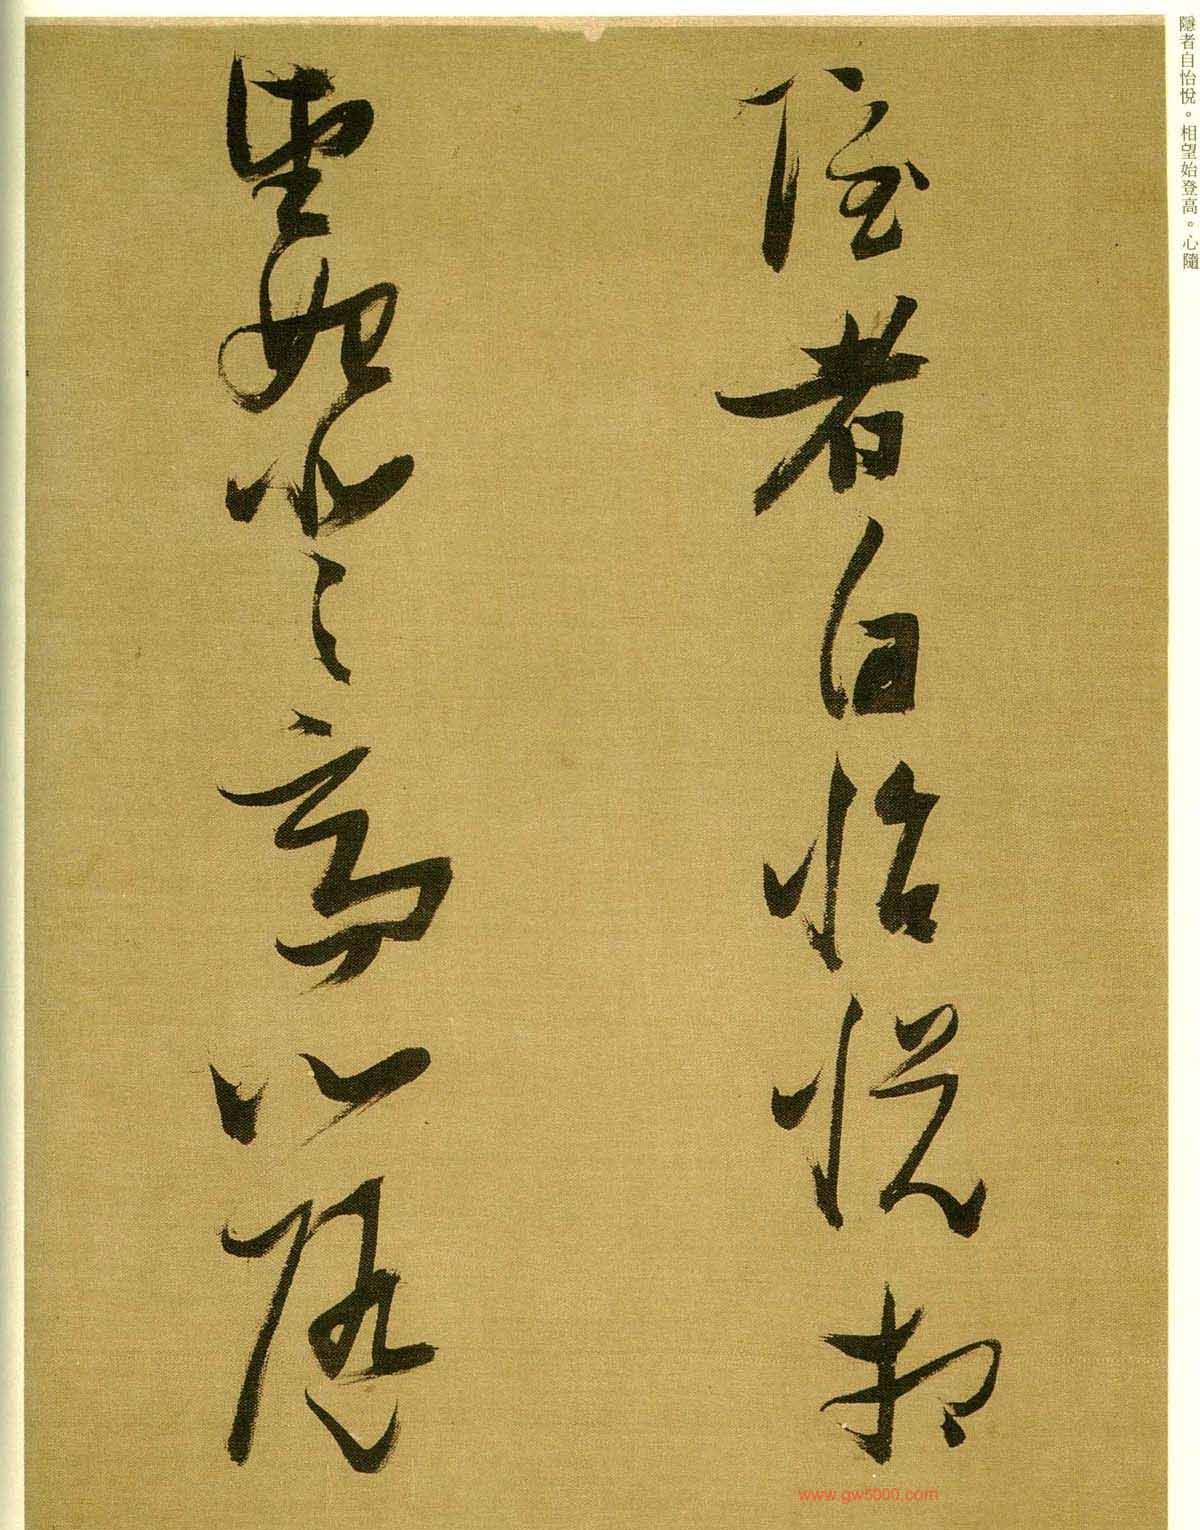 隱者自怡悅。相望始登高。心隨
隱者自怡悅相
望始登高心隨
www.gw5000.com